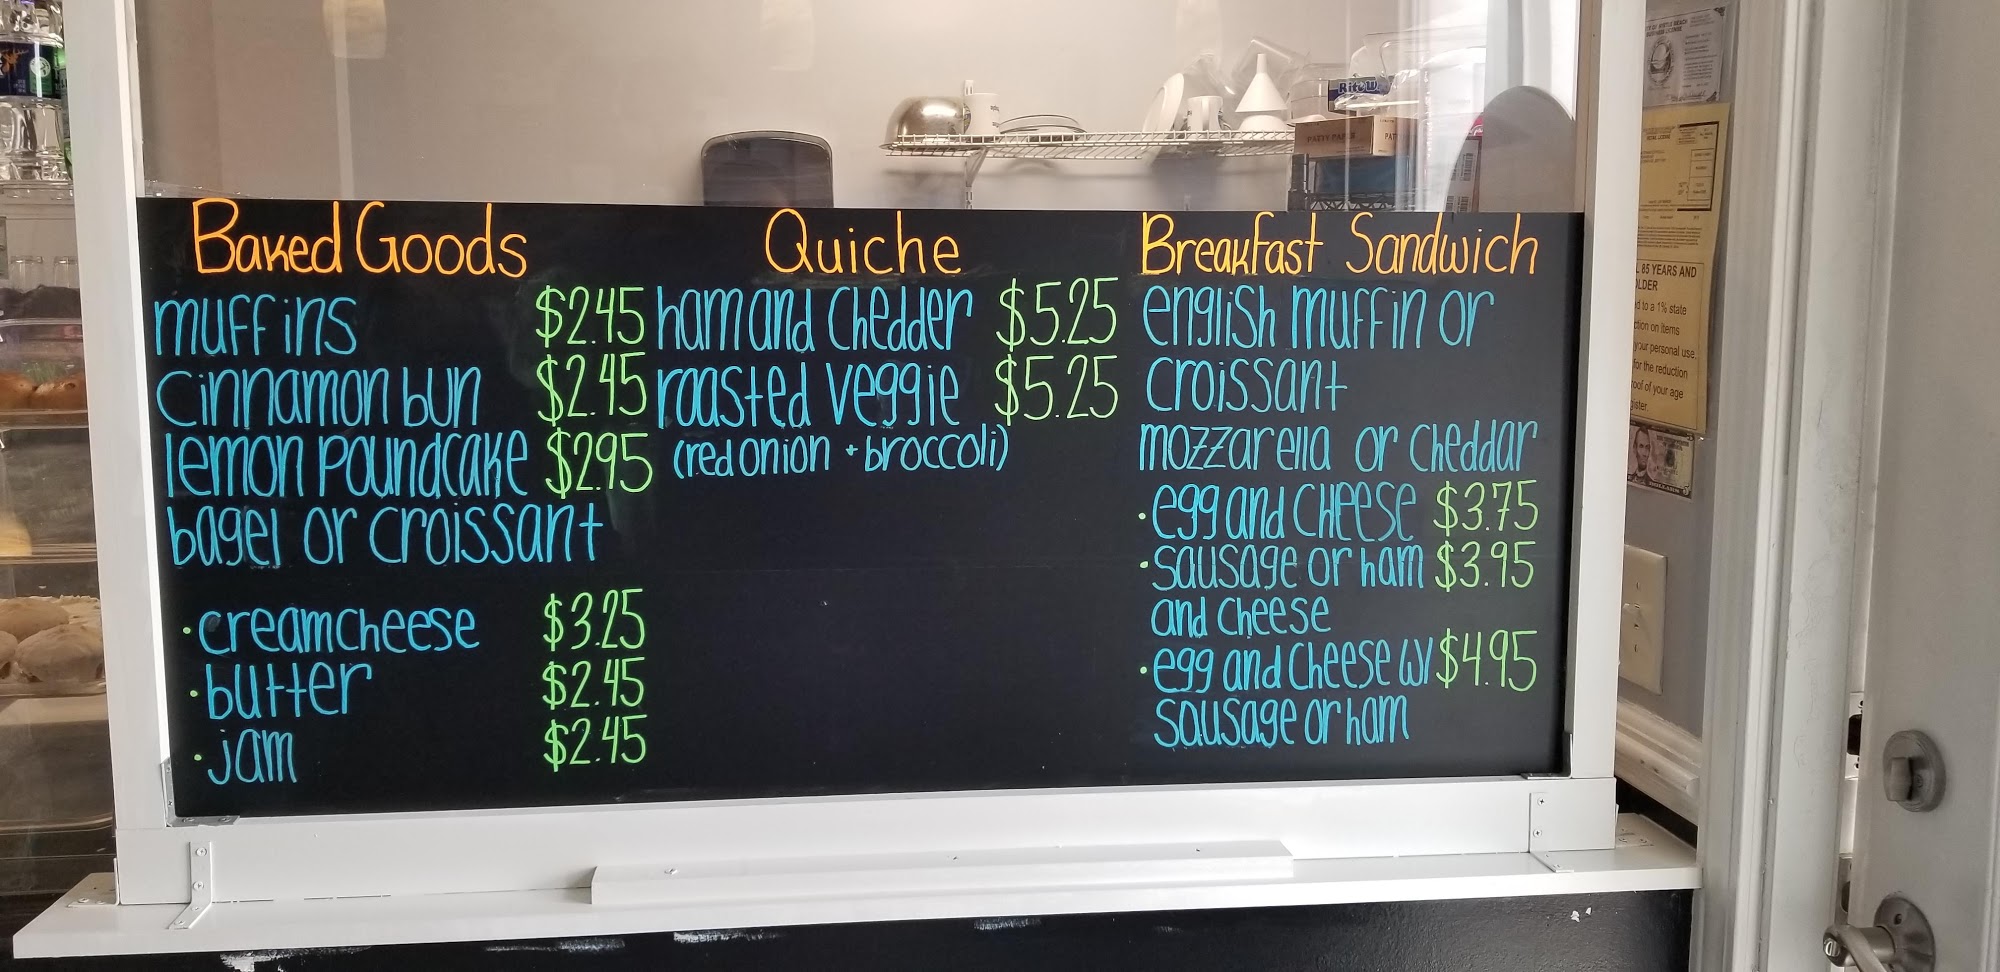 Baked Goods
muffins $2.45
cinnamon bun $2.45
lemon poundcake $2.95
bagel or croissant
· creamcheese $3.25
· butter $2.45
· jam $2.45
Quiche
ham and chedder $5.25
roasted veggie $5.25
(red onion + broccoli)
Breakfast Sandwich
english muffin or
croissant
mozzarella or cheddar
· egg and cheese $3.75
· sausage or ham $3.95
and cheese
· egg and cheese w/ $4.95
sausage or ham
PATTY PAPER
85 YEARS AND
to a 1% state
on items
your personal use
for the reduction
of your age